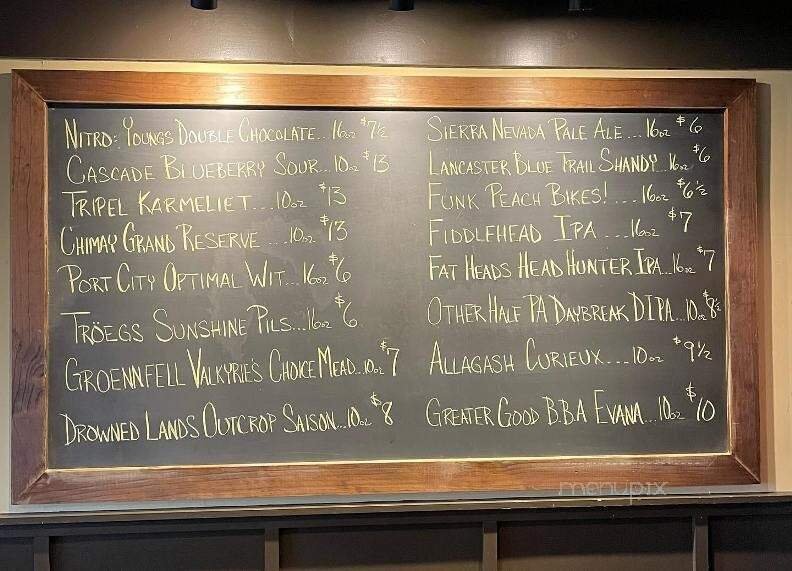 NITRO: YOUNGS DOUBLE CHOCOLATE...16oz $7½
CASCADE BLUEBERRY SOUR...10oz $13
TRIPEL KARMELIET...10oz $13
CHIMAY GRAND RESERVE ...10oz $13
PORT CITY OPTIMAL WIT...16oz $6
TRÖEGS SUNSHINE PILS...16oz $6
GROENNFELL VALKYRIE'S CHOICE MEAD...10oz $7
DROWNED LANDS OUTCROP SAISON...10oz $8
SIERRA NEVADA PALE ALE ...16oz $6
LANCASTER BLUE TRAIL SHANDY...16oz $6
FUNK PEACH BIKES! ....16oz $6½
FIDDLEHEAD IPA ...16oz $7
FAT HEADS HEAD HUNTER IPA...16oz $7
OTHER HALF PA DAYBREAK DIPA...10oz $8½
ALLAGASH CURIEUX....10oz $9½
GREATER GOOD B.B.A EVANA...10oz $10
menupix